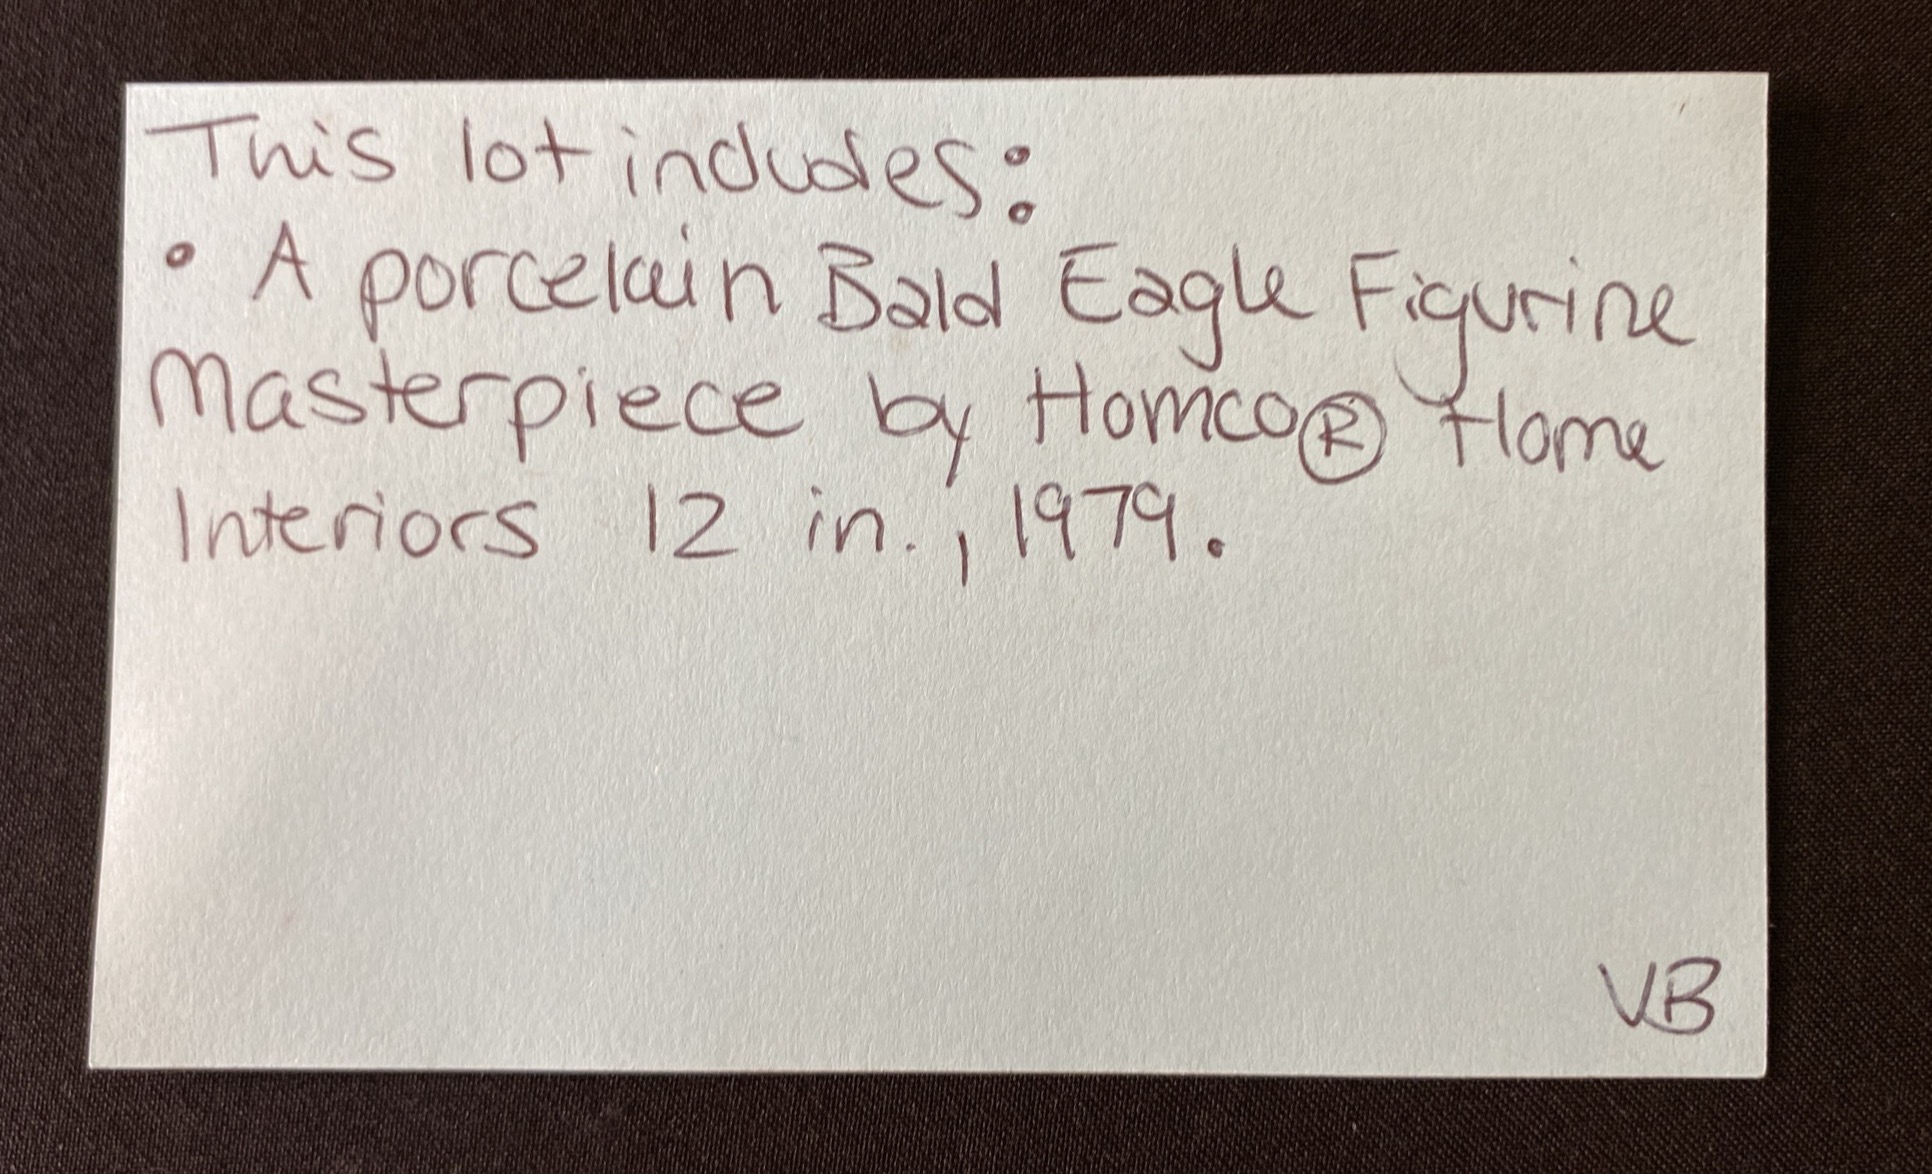 This lot includes:
• A porcelain Bald Eagle Figurine
Masterpiece by Homco® Home
Interiors 12 in., 1979.
VB